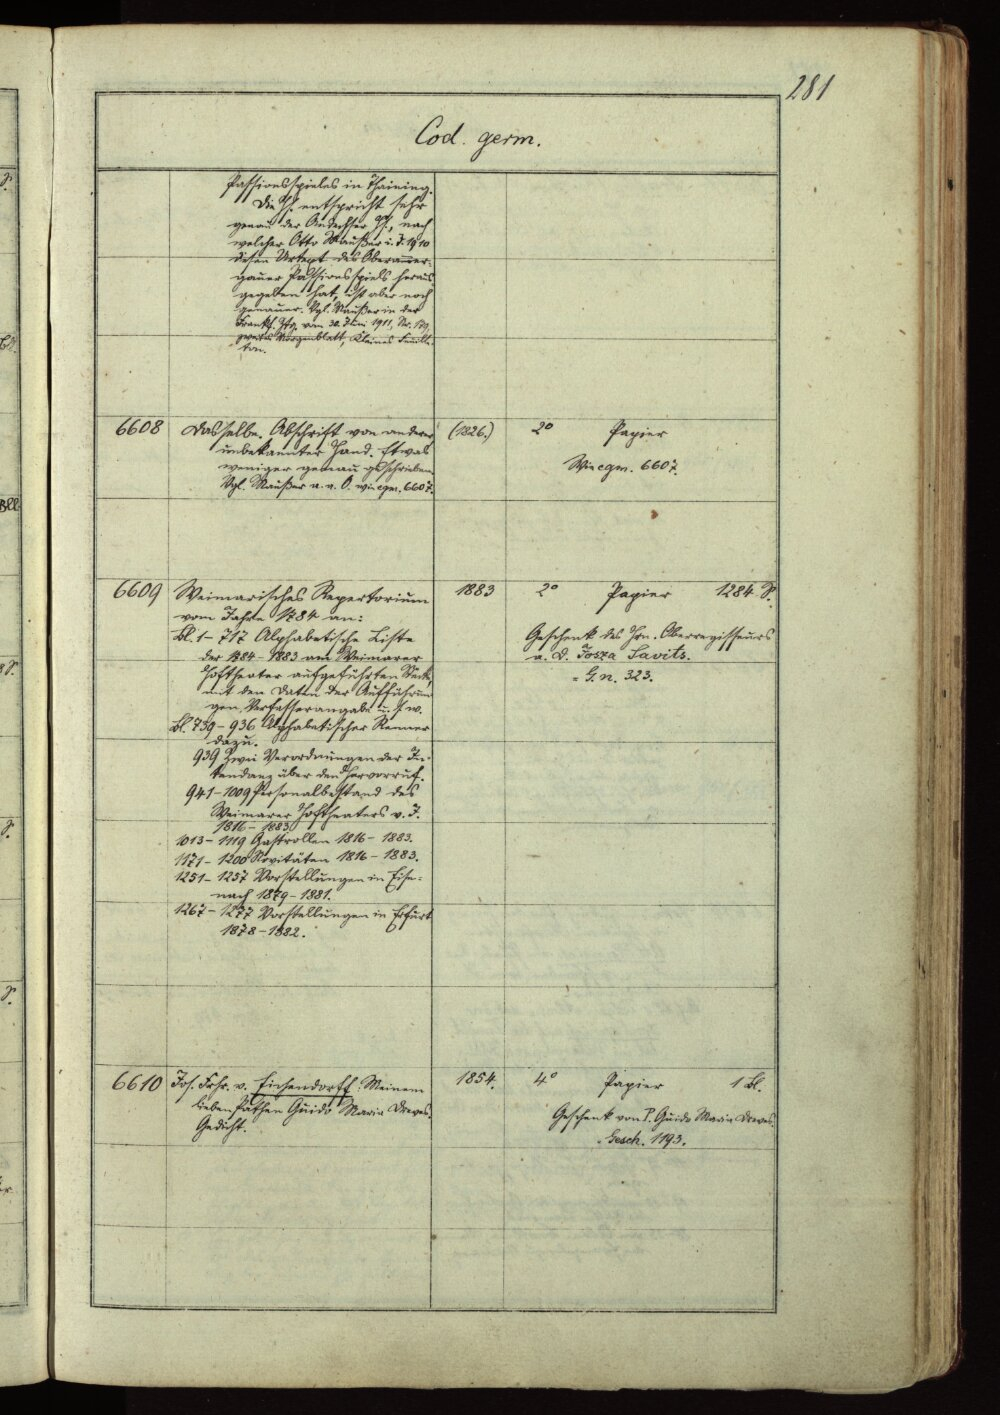 281
Cod. germ.
Passionsspieles in Thaining.
Die Hs. entspricht sehr
genau der Andechser Hs., nach
welcher Otto Maußer i. J. 1910
diesen Urtext des Oberammer-
gauer Passionsspiels heraus
gegeben hat, ist aber noch
genauer. Vgl. Maußer in der
Frankf. Ztg. vom 30. Juni 1911, Nr. 179,
zweites Morgenblatt, Kleines Feuille-
ton.
6608 Dasselbe. Abschrift von anderer (1826.) 2° Papier
unbekannter Hand. Etwas
weniger genau geschrieben. Wie cgm. 6607.
Vgl. Maußer a. a. O. wie cgm. 6607.
6609 Weimarisches Repertorium 1883 2° Papier 1284 S.
vom Jahre 1784 an:
Bl. 1 – 717 Alphabetische Liste Geschenk des Hrn. Oberregisseurs
der 1784 – 1883 am Weimarer a. D. Josza Savits.
Hoftheater aufgeführten Stücke, = G. n. 323.
mit den Daten der Aufführun-
gen, Verfasserangabe u. s. w.
Bl. 739 – 936 Alphabetischer Renner
dazu.
939 Zwei Verordnungen der In-
tendanz über den Hervorruf.
941 – 1009 Personalbestand des
Weimarer Hoftheaters v. J.
1816 – 1883
1013 – 1119 Gastrollen 1816 – 1883.
1171 – 1200 Novitäten 1816 – 1883.
1251 – 1257 Vorstellungen in Eise-
nach 1879 – 1881.
1267 – 1277 Vorstellungen in Erfurt
1878 – 1882.
6610 Jos. Frhr. v. Eichendorff: Meinem 1854. 4° Papier 1 Bl.
lieben Pathen Guido Maria Dreves. Geschenk von P. Guido Maria Dreves.
Gedicht. = Gesch. 1193.